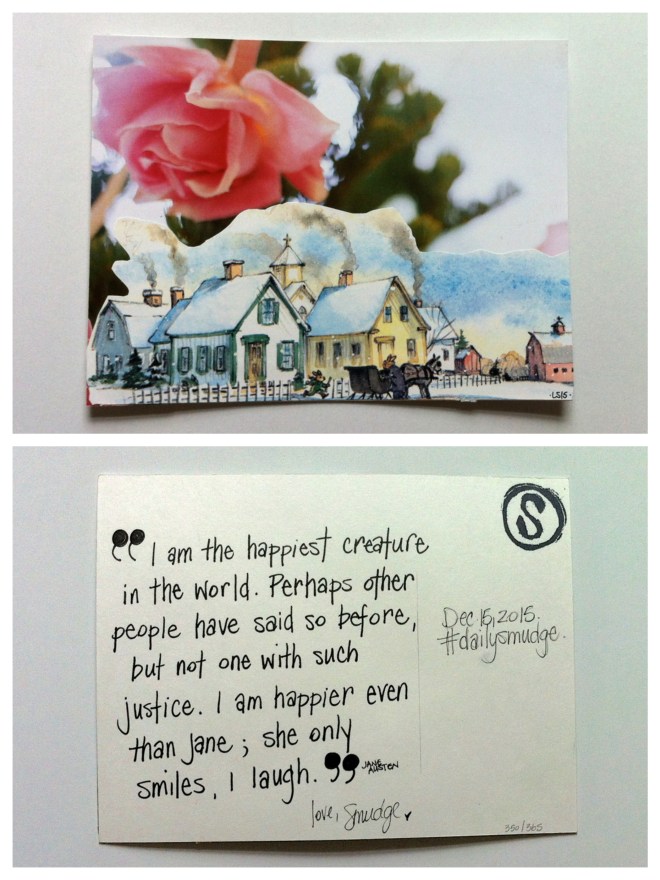 -LS15-
S
“I am the happiest creature
in the world. Perhaps other
people have said so before,
but not one with such
justice. I am happier even
than Jane; she only
smiles, I laugh.”
JANE
AUSTEN
love, Smudge
Dec 15, 2015.
#dailysmudge.
350/365